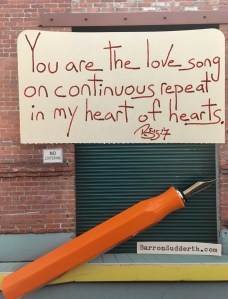 You are the love song
on continuous repeat
in my heart of hearts.
NO
BarronSudderth.com